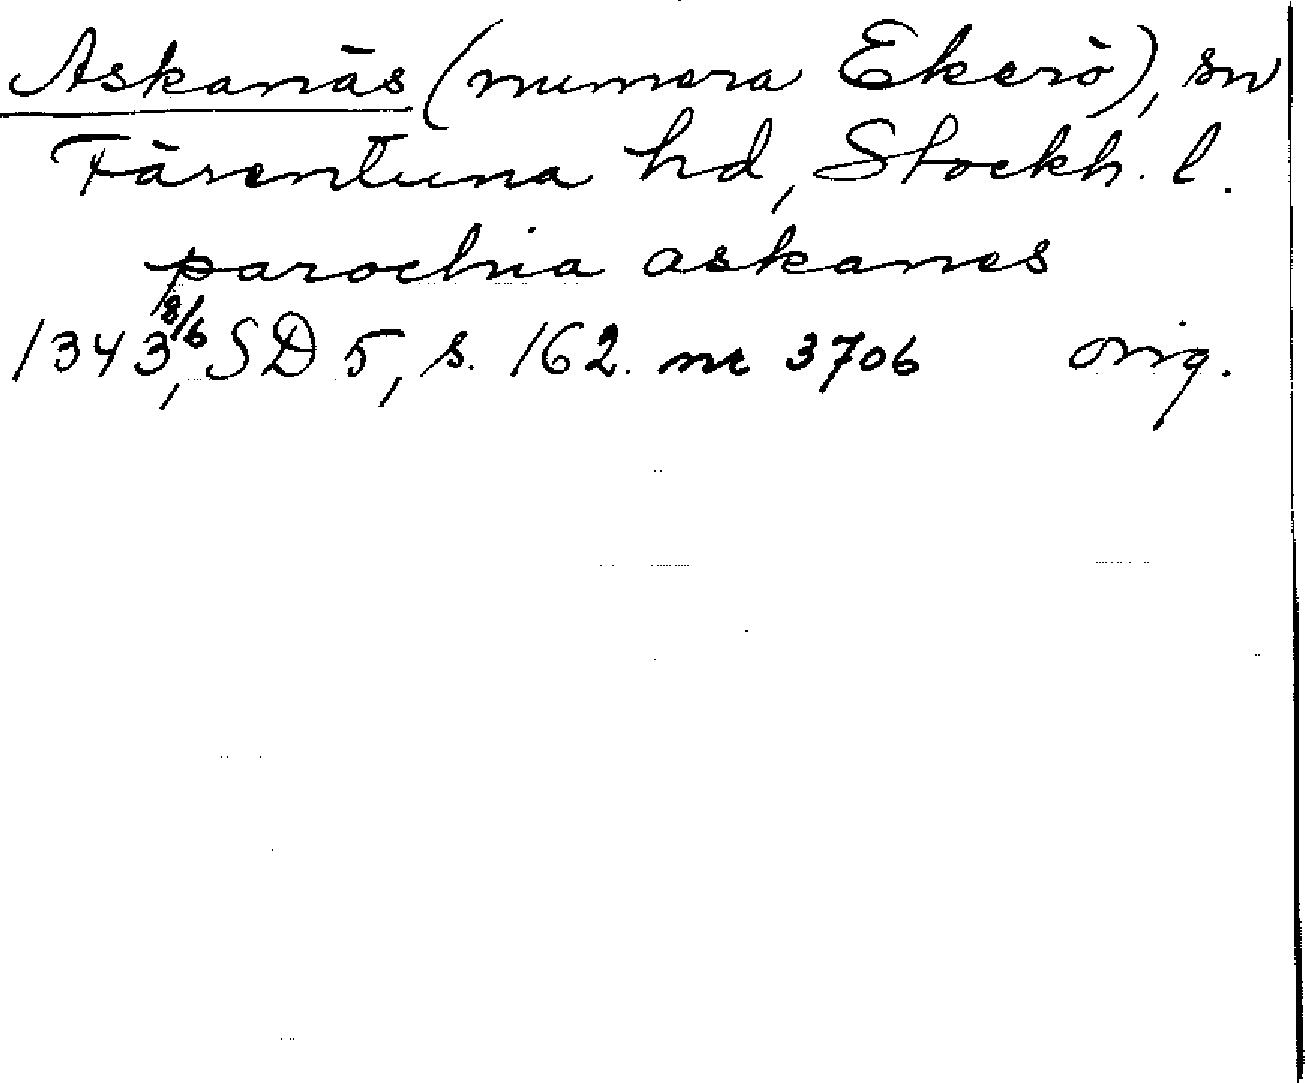 Askanäs (numera Ekerö), sn
Färentuna hd, Stockh. l.
parochia askanes
1343 8/6, SD 5, s. 162. nr 3706 orig.